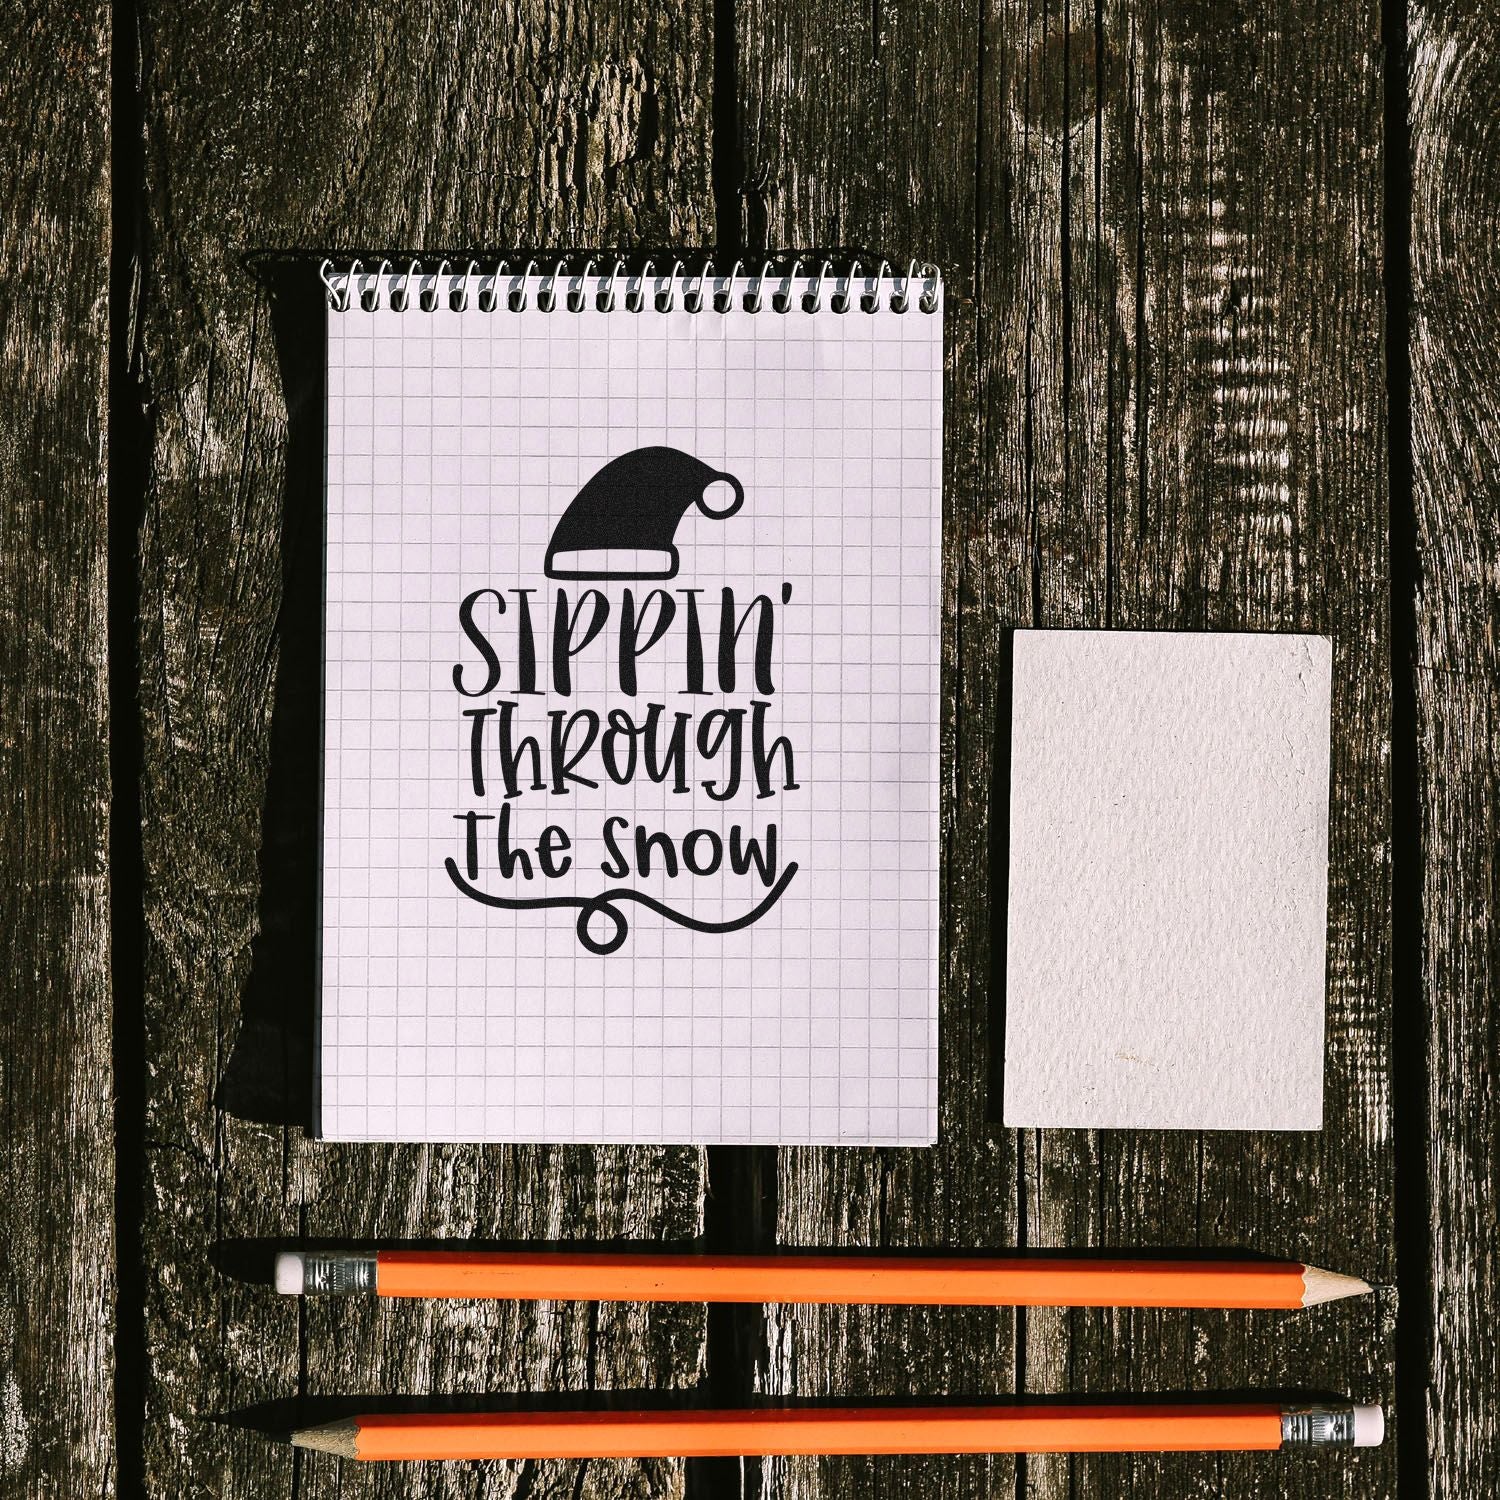 SIPPIN'
ThRough
The snow